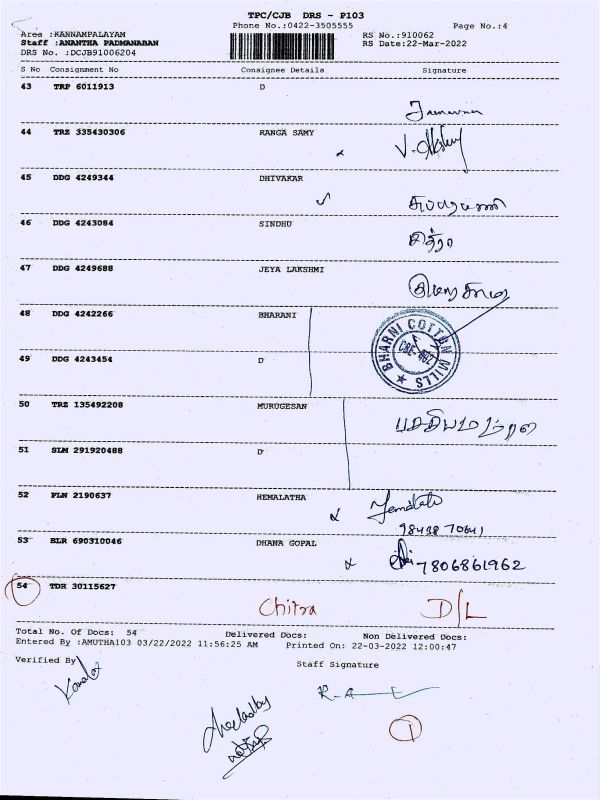 TPC/CJB DRS - P103
Phone No.:0422-3505555 Page No.:4
Area :KANNAMPALAYAM RS No.:910062
Staff :ANANTHA PADMANABAN RS Date:22-Mar-2022
DRS No. :DCJB91006204
S No Consignment No Consignee Details Signature
43 TRP 6011913 D
44 TRZ 335430306 RANGA SAMY
45 DDG 4249344 DHIVAKAR
46 DDG 4243084 SINDHU சித்ரா
47 DDG 4249688 JEYA LAKSHMI
48 DDG 4242266 BHARANI
BHARNI COTTON MILLS
49 DDG 4243454 D
50 TRZ 135492208 MURUGESAN
51 SLM 291920488 D
52 PLN 2190637 HEMALATHA Hemalata
98438 70641
53 BLR 690310046 DHANA GOPAL 7806861962
54 TDR 30115627
Chitra D/L
Total No. Of Docs: 54 Delivered Docs: Non Delivered Docs:
Entered By :AMUTHA103 03/22/2022 11:56:25 AM Printed On: 22-03-2022 12:00:47
Verified By Staff Signature
checked by
1